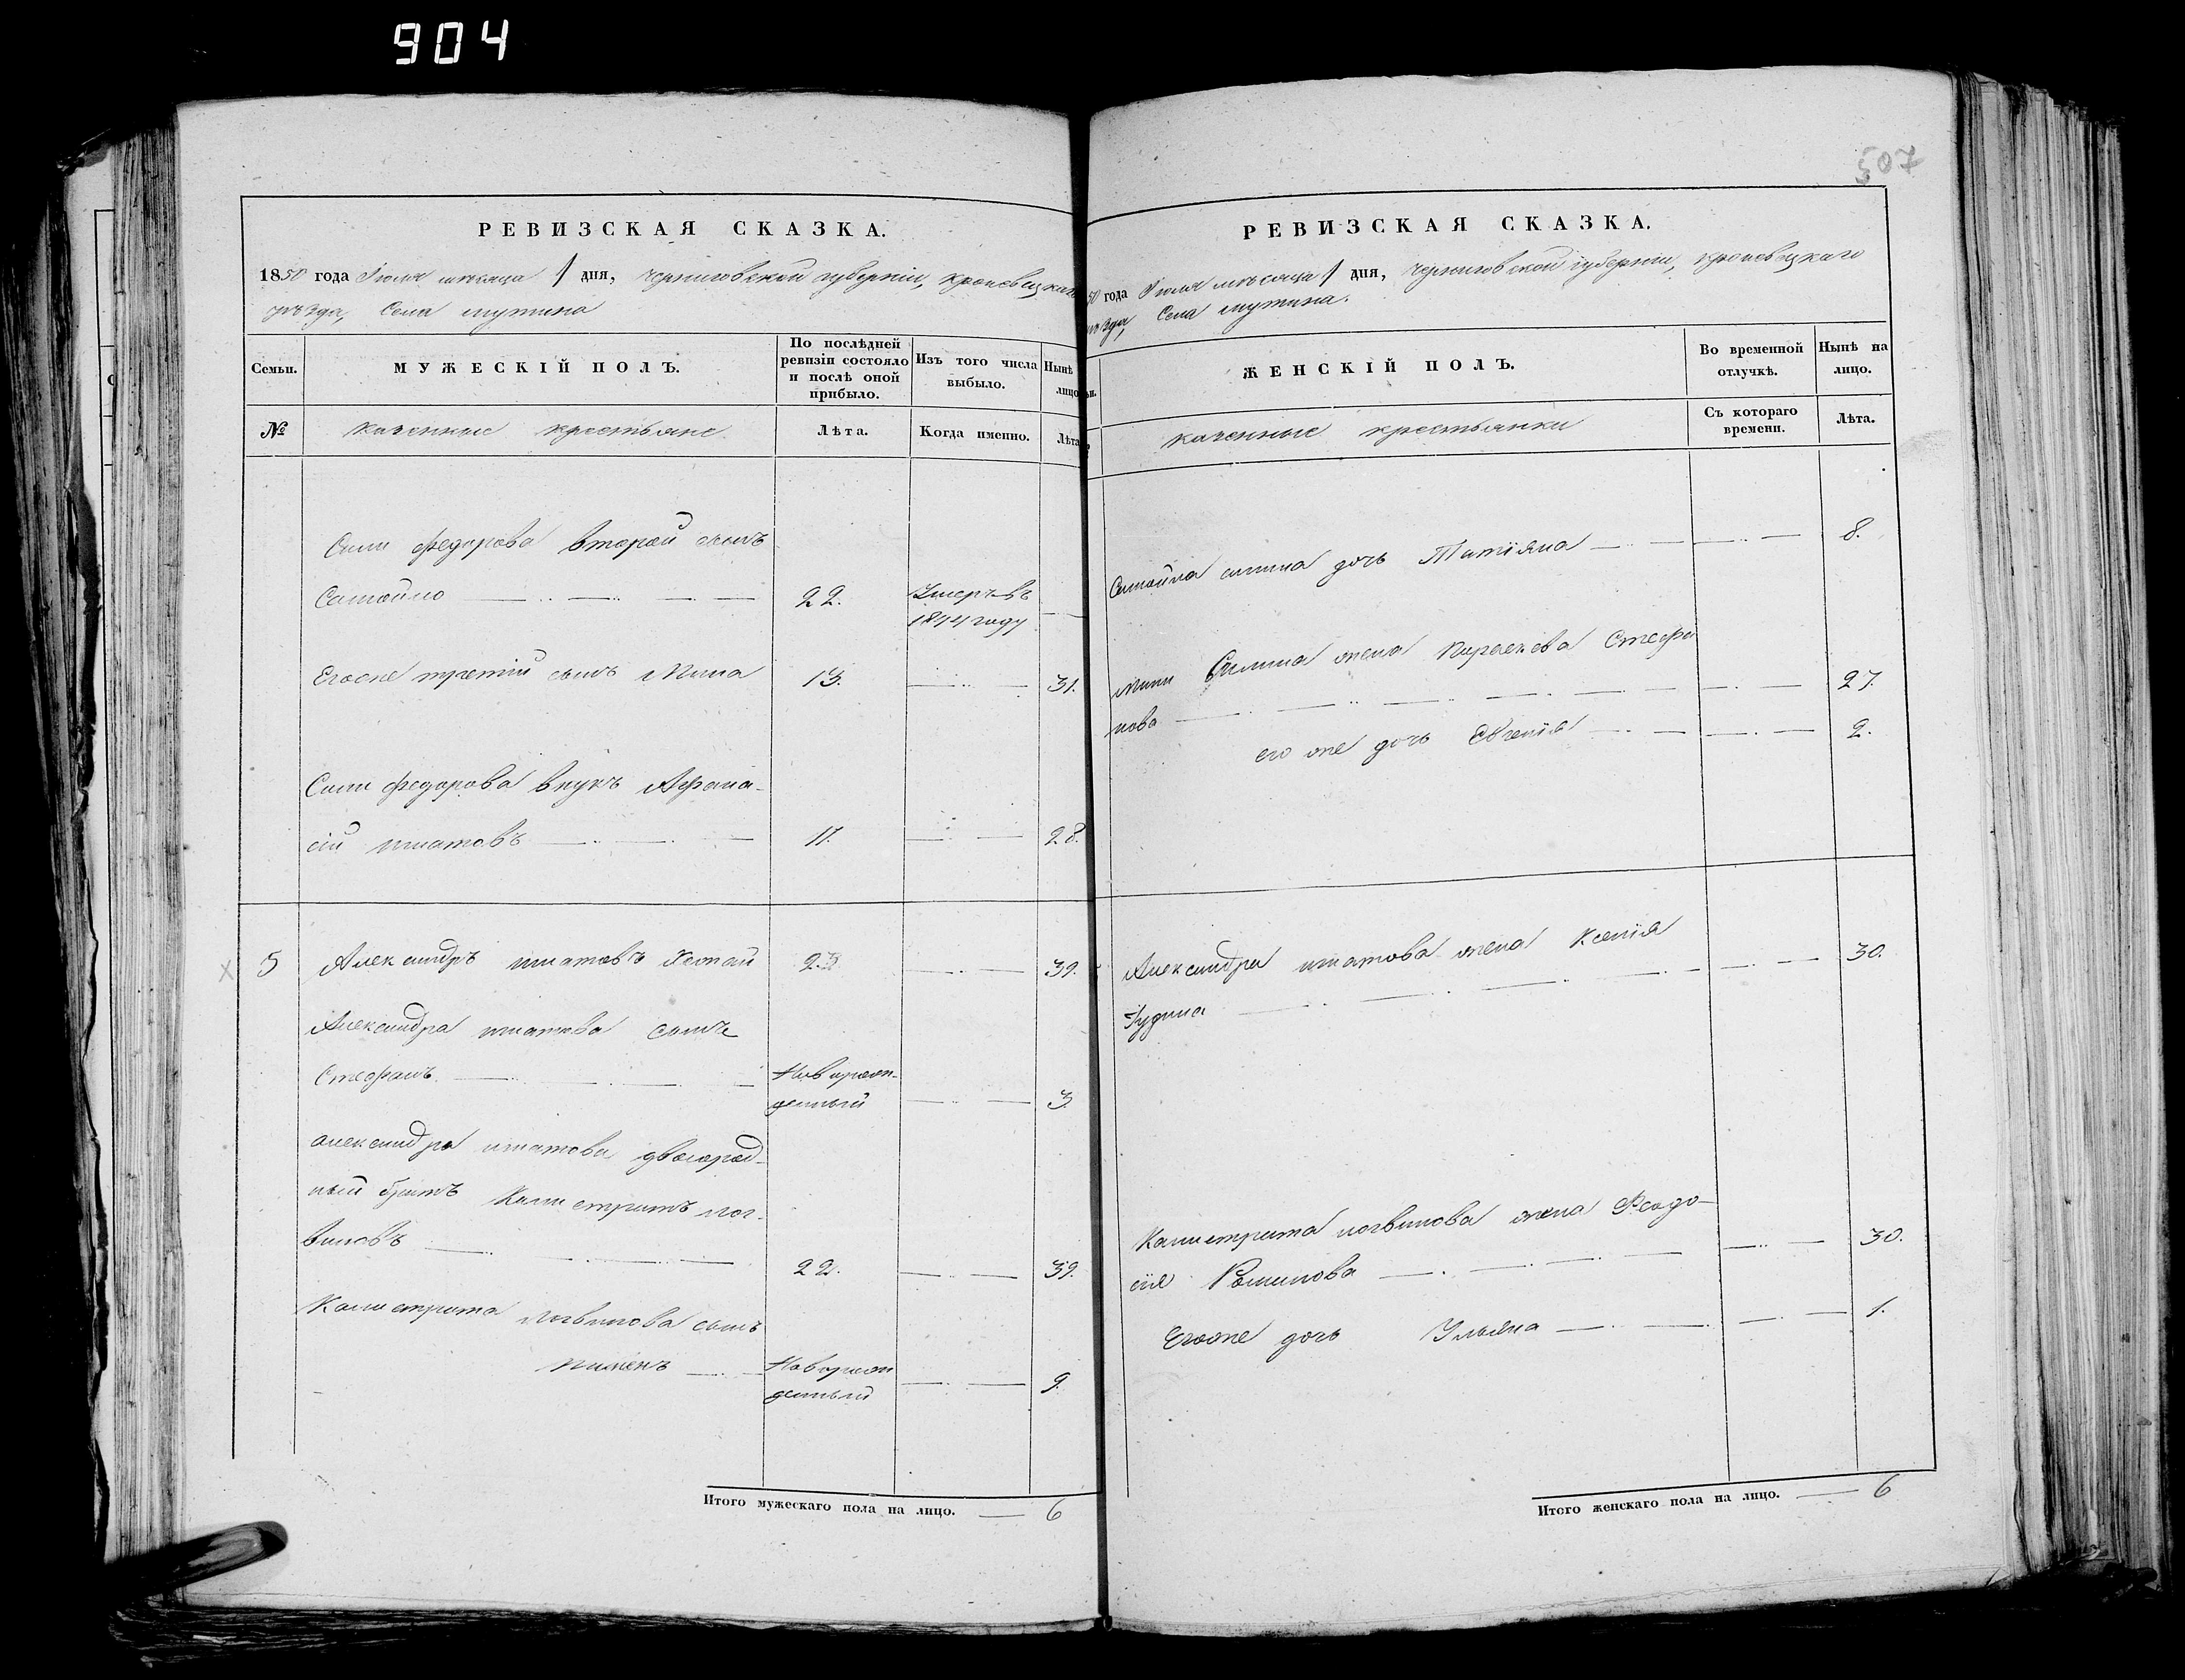 904
507
РЕВИЗСКАЯ СКАЗКА.
1850 года Іюля мѣсяца 1 дня, Черниговской губерніи, Кролевецкаго
уѣзда, Села Мутина
Семьи.
МУЖЕСКІЙ ПОЛЪ.
По послѣдней
ревизіи состояло
и послѣ оной
прибыло.
Изъ того числа
выбыло.
Нынѣ
лицо
№
Казенные крестьяне
Лѣта.
Когда именно.
Лѣта
Силы Федорова второй сынъ
Самойло
22.
Умеръ въ
1844 году
Егоже третій сынъ Мина
13.
31.
Силы Федорова внукъ Афана-
сій Игнатовъ
11.
28.
5
Александръ Игнатовъ
23
39.
Александра Игнатова сынъ
Стефанъ
Новорож-
денный
3
Александра Игнатова двоюрод-
ный братъ Калистратъ Лог-
виновъ
22.
39.
Калистрата Логвинова сынъ
Пименъ
Новорож
денный
9.
Итого мужескаго пола на лицо.
6
РЕВИЗСКАЯ СКАЗКА.
50 года Іюля мѣсяца 1 дня, Черниговской губерніи, Кролевецкаго
уѣзда, Села Мутина.
ьи.
ЖЕНСКІЙ ПОЛЪ.
Во временной
отлучкѣ.
Нынѣ на
лицо.
Казенные крестьянки
Съ котораго
времени.
Лѣта.
Самойла Силина дочь Татіяна
8.
Мины Силина жена Параскева Стефа
нова
27.
его же дочь Евгенія
2.
Александра Игнатова жена Ксенія
Іудина
30.
Калистрата Логвинова жена Феодо-
сія
30.
Егоже дочь Ульяна
1.
Итого женскаго пола на лицо.
6